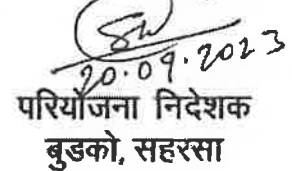 20.09.2023
परियोजना निदेशक
बुडको, सहरसा